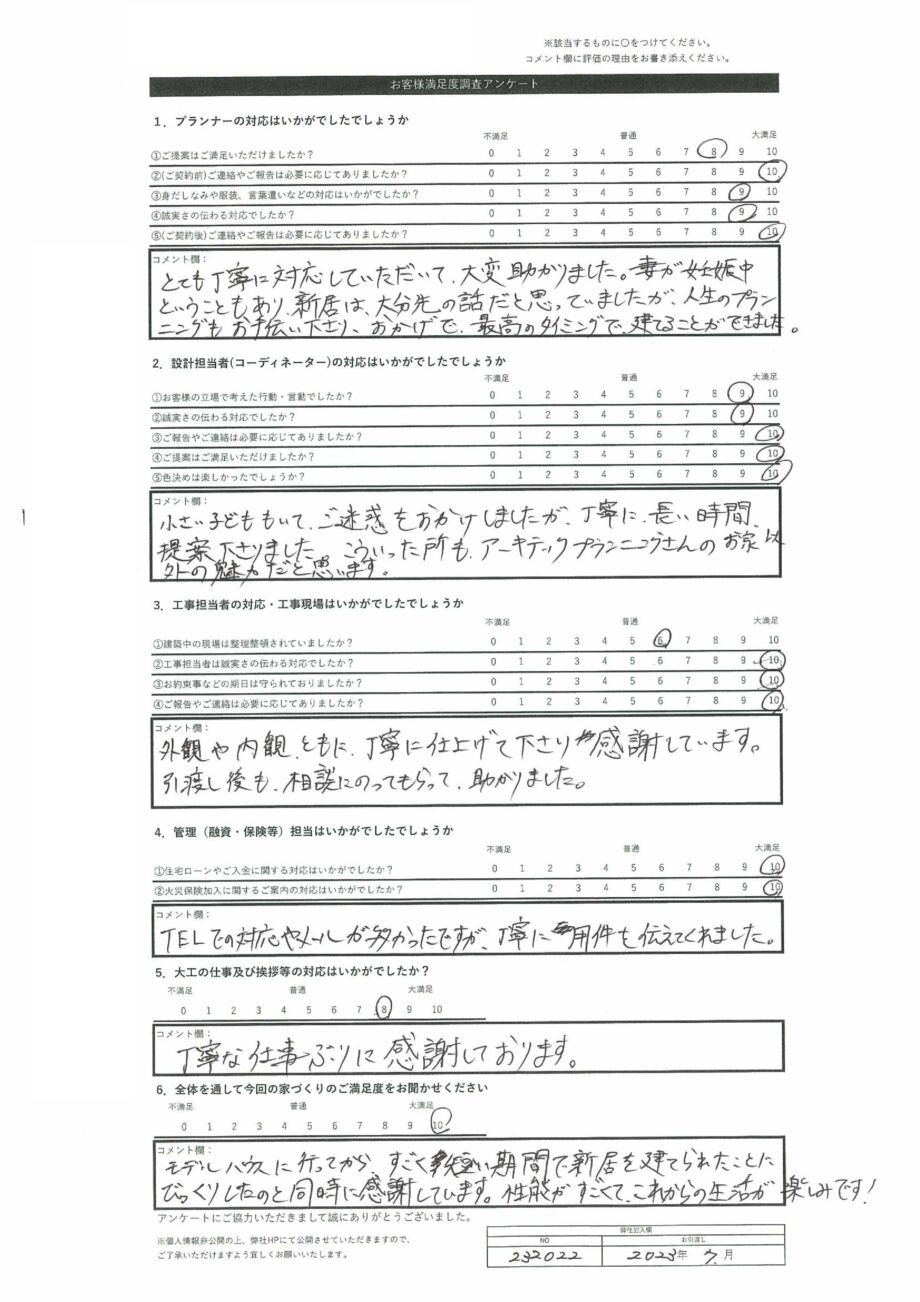 ※該当するものに〇をつけてください。
コメント欄に評価の理由をお書き添えください。
お客様満足度調査アンケート
1．プランナーの対応はいかがでしたでしょうか
不満足 普通 大満足
①ご提案はご満足いただけましたか？ 0 1 2 3 4 5 6 7 8 9 10
②(ご契約前)ご連絡やご報告は必要に応じてありましたか？ 0 1 2 3 4 5 6 7 8 9 10
③身だしなみや服装、言葉遣いなどの対応はいかがでしたか？ 0 1 2 3 4 5 6 7 8 9 10
④誠実さの伝わる対応でしたか？ 0 1 2 3 4 5 6 7 8 9 10
⑤(ご契約後)ご連絡やご報告は必要に応じてありましたか？ 0 1 2 3 4 5 6 7 8 9 10
コメント欄：
とても丁寧に対応していただいて、大変助かりました。妻が妊娠中
ということもあり、新居は、大分先の話だと思っていましたが、人生のプラン
ニングもお手伝い下さり、おかげで、最高のタイミングで、建てることができました。
2．設計担当者(コーディネーター)の対応はいかがでしたでしょうか
不満足 普通 大満足
①お客様の立場で考えた行動・言動でしたか？ 0 1 2 3 4 5 6 7 8 9 10
②誠実さの伝わる対応でしたか？ 0 1 2 3 4 5 6 7 8 9 10
③ご報告やご連絡は必要に応じてありましたか？ 0 1 2 3 4 5 6 7 8 9 10
④ご提案はご満足いただけましたか？ 0 1 2 3 4 5 6 7 8 9 10
⑤色決めは楽しかったでしょうか？ 0 1 2 3 4 5 6 7 8 9 10
コメント欄：
小さい子どももいて、ご迷惑をおかけしましたが、丁寧に、長い時間、
提案下さりました。こういった所も、アーキテックプランニングさんのお家以
外の魅力だと思います。
3．工事担当者の対応・工事現場はいかがでしたでしょうか
不満足 普通 大満足
①建築中の現場は整理整頓されていましたか？ 0 1 2 3 4 5 6 7 8 9 10
②工事担当者は誠実さの伝わる対応でしたか？ 0 1 2 3 4 5 6 7 8 9 10
③お約束事などの期日は守られておりましたか？ 0 1 2 3 4 5 6 7 8 9 10
④ご報告やご連絡は必要に応じてありましたか？ 0 1 2 3 4 5 6 7 8 9 10
コメント欄：
外観や内観、ともに、丁寧に仕上げて下さり感謝しています。
引渡し後も、相談にのってもらって、助かりました。
4．管理（融資・保険等）担当はいかがでしたでしょうか
不満足 普通 大満足
①住宅ローンやご入金に関する対応はいかがでしたか？ 0 1 2 3 4 5 6 7 8 9 10
②火災保険加入に関するご案内の対応はいかがでしたか？ 0 1 2 3 4 5 6 7 8 9 10
コメント欄：
TELでの対応やメールが多かったですが、丁寧に用件も伝えてくれました。
5．大工の仕事及び挨拶等の対応はいかがでしたか？
不満足 普通 大満足
0 1 2 3 4 5 6 7 8 9 10
コメント欄：
丁寧な仕事ぶりに感謝しております。
6．全体を通して今回の家づくりのご満足度をお聞かせください
不満足 普通 大満足
0 1 2 3 4 5 6 7 8 9 10
コメント欄：
モデルハウスに行ってから、すごく短い期間で新居を建てられたことに
びっくりしたのと同時に感謝しています。性能がすごくて、これからの生活が楽しみです！
アンケートにご協力いただきまして誠にありがとうございました。
※個人情報非公開の上、弊社HPにて公開させていただきますので、
ご了承いただけますよう宜しくお願いいたします。
弊社記入欄
NO お引渡し
232022 2023年 7月